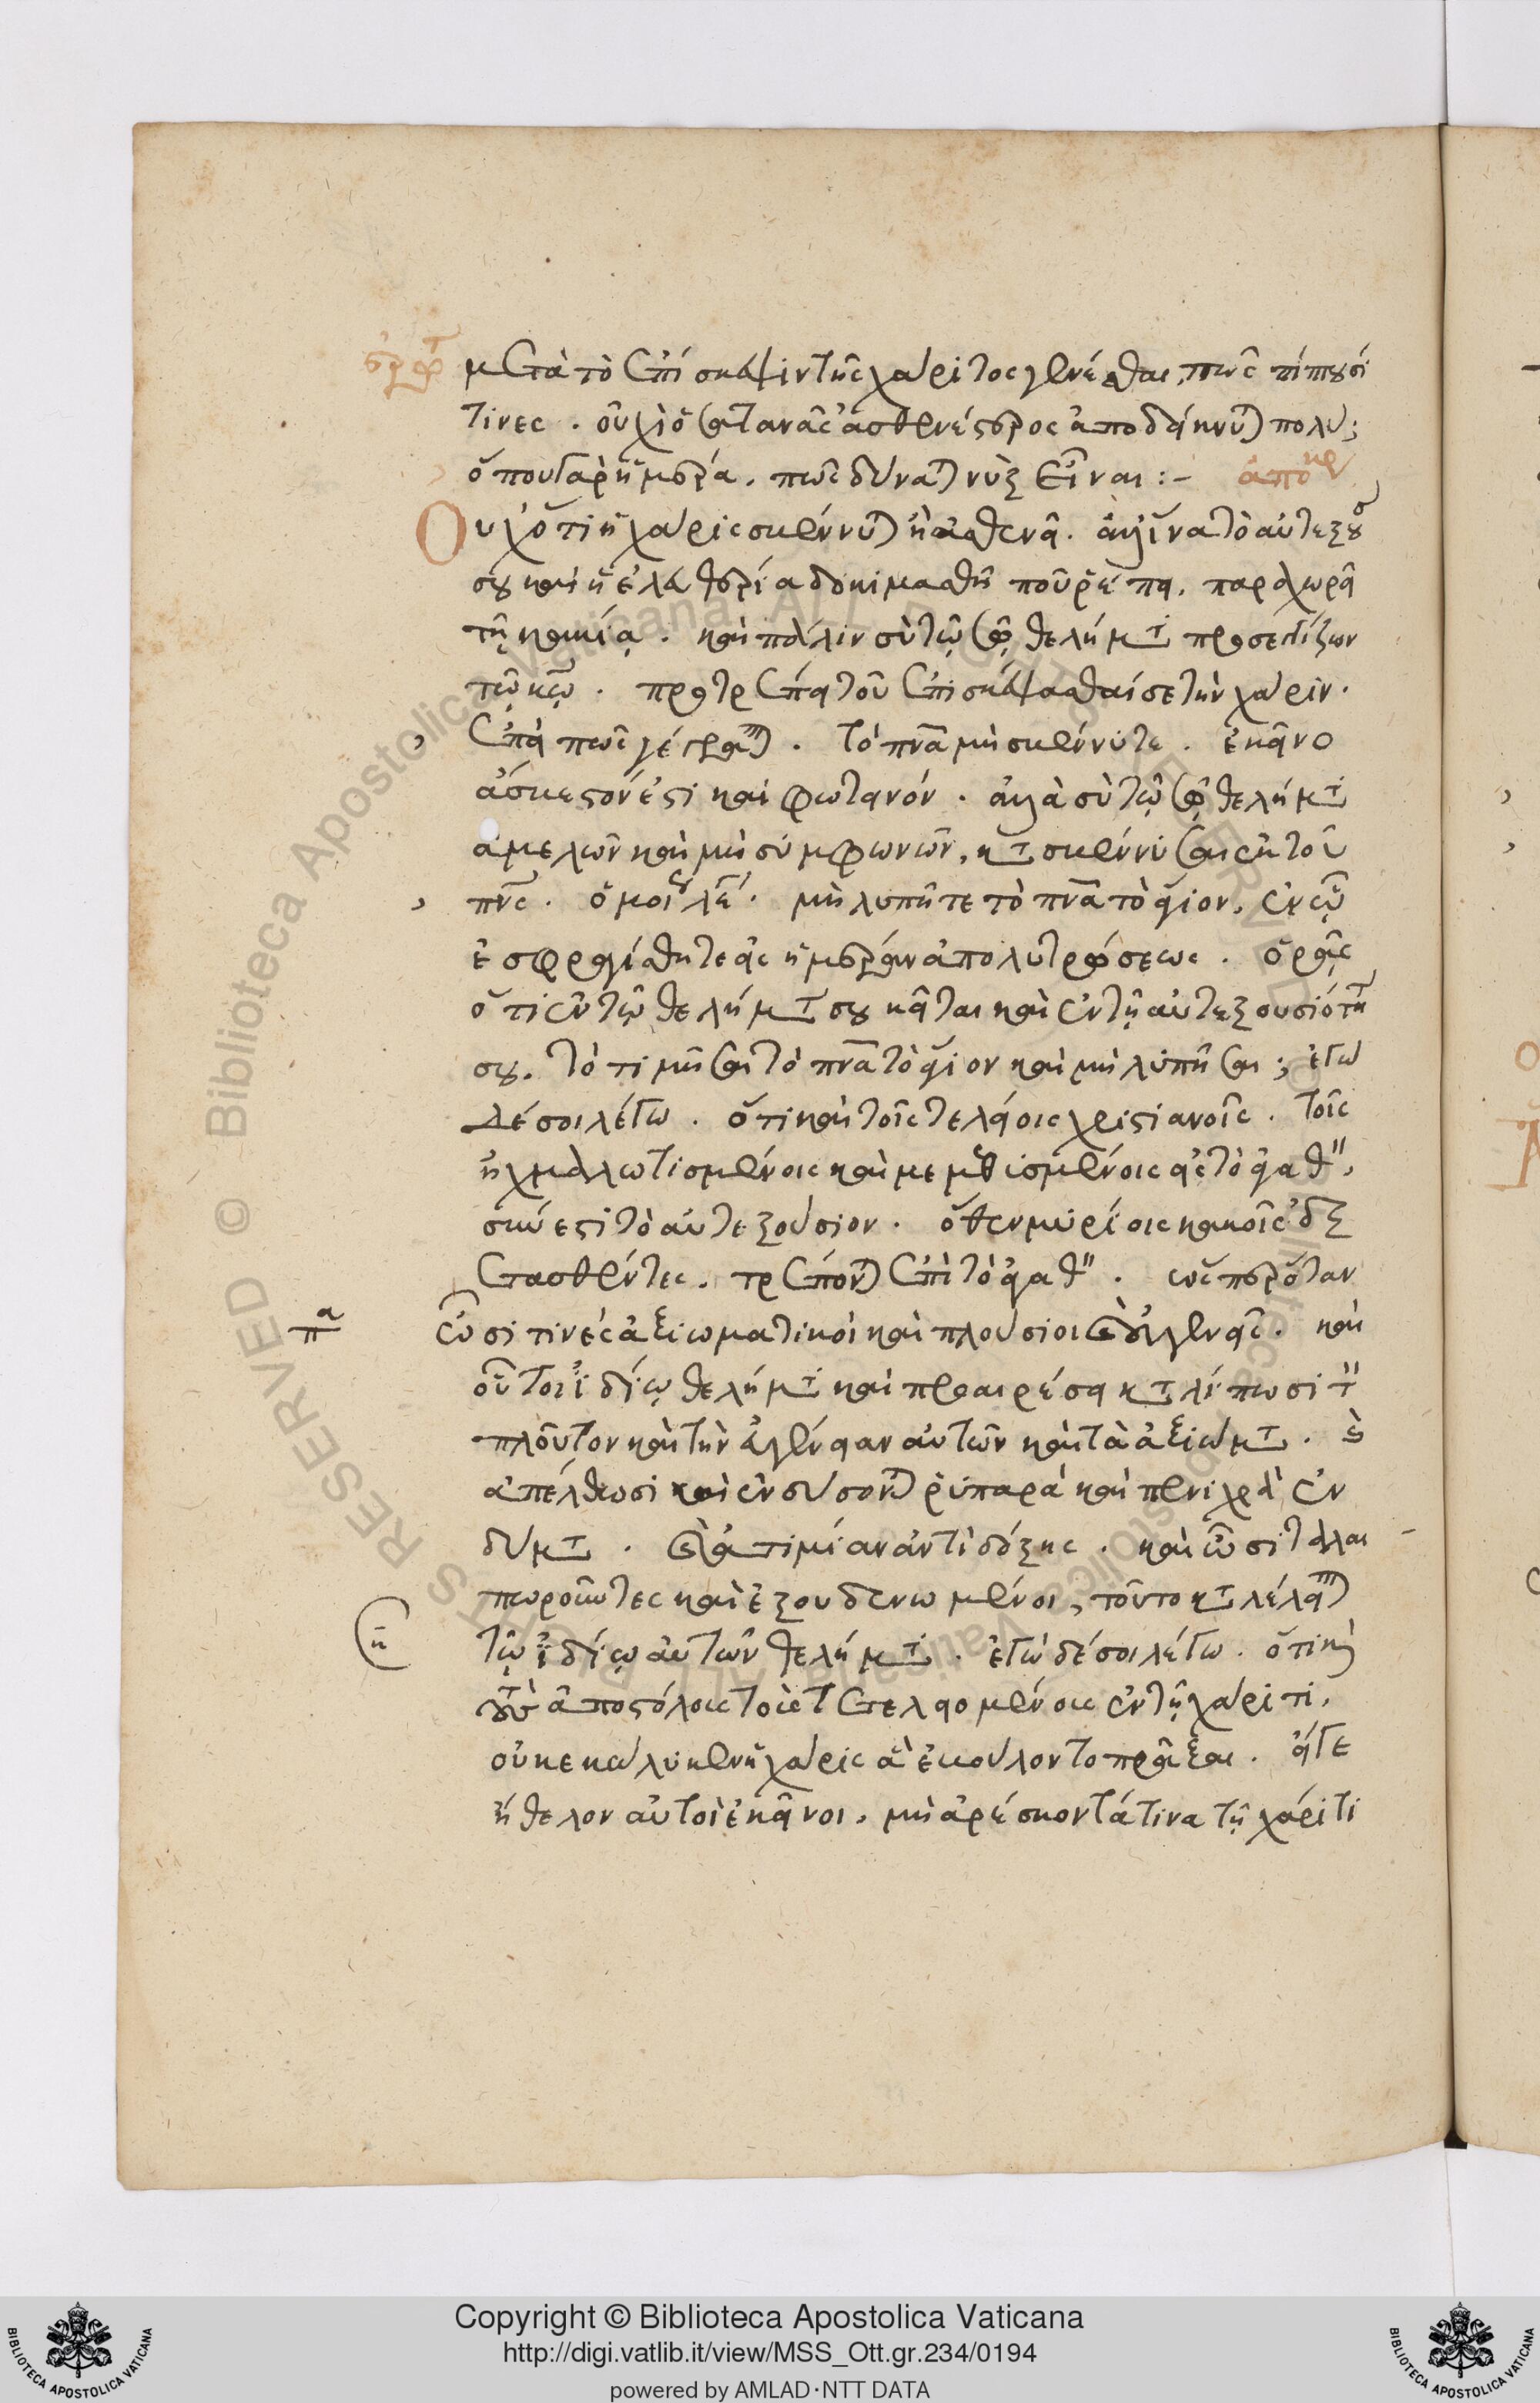 ἐρώτ μετὰ τὸ ἐπίσκεψιν τῆς χάριτος γενέσθαι, πῶς πίπτουσί
τινες. οὐχὶ ὁ σατανᾶς ἀσθενέστερος ἀποδείκνυται πολύ;
ὅπου γὰρ ἡμέρα, πῶς δύναται νὺξ εἶναι :- ἀπόκρ
Οὐχ ὅτι ἡ χάρις σβέννυται ἢ ἀσθενεῖ. ἀλλ' ἵνα τὸ αὐτεξού
σιον καὶ ἡ ἐλευθερία δοκιμασθῇ ποῦ ῥέπει, παραχωρεῖ
τῇ κακίᾳ. καὶ πάλιν σὺ τῷ σῷ θελήματι προσεγγίζων
τῷ κῳ. προτρέπει τοῦ ἐπισκέψασθαί σε τὴν χάριν.
ἐπεὶ πῶς γέγραπται. τὸ πνα μὴ σβέννυτε. ἐκεῖνο
ἄσβεστόν ἐστι καὶ φωτεινόν. ἀλλὰ σὺ τῷ σῷ θελήματι
ἀμελῶν καὶ μὴ συμφωνῶν, κατασβέννυσαι ἐκ τοῦ
πνς. ὁμοί λέ. μὴ λυπῆτε τὸ πνα τὸ ἅγιον, ἐν ᾧ
ἐσφραγίσθητε εἰς ἡμέραν ἀπολυτρώσεως. ὁρᾷς
ὅτι ἐν τῷ θελήματι σου κεῖται καὶ ἐν τῇ αὐτεξουσιότητι
σου. τὸ τιμῆσαι τὸ πνα τὸ ἅγιον καὶ μὴ λυπῆσαι; ἐγὼ
δέ σοι λέγω. ὅτι καὶ τοῖς τελείοις χριστιανοῖς. τοῖς
ᾐχμαλωτισμένοις καὶ μεμεθυσμένοις εἰς τὸ ἀγαθὸν,
σύνεστι τὸ αὐτεξούσιον. ὅθεν μυρίοις κακοῖς ἐξ
ετασθέντες. τρέπονται ἐπὶ τὸ ἀγαθὸν. ὥσπερ ὅταν
ὦσί τινες ἀξιωματικοὶ καὶ πλούσιοι καὶ εὐγενεῖς. καὶ
οὗτοι ἰδίῳ θελήματι καὶ προαιρέσει καταλίπωσι τὸν
πλοῦτον καὶ τὴν εὐγένειαν αὐτῶν καὶ τὰ ἀξιώματα. καὶ
ἀπέλθωσι καὶ ἐνδύσονται ῥυπαρὰ καὶ πενιχρὰ ἐν
δύματα. καὶ ἀτιμίαν ἀντὶ δόξης. καὶ ὦσι ταλαι
πωροῦντες καὶ ἐξουδενωμένοι, τοῦτο καταλέλειπται
τῷ ἰδίῳ αὐτῶν θελήματι. ἐγὼ δέ σοι λέγω. ὅτι καὶ
τοῖς ἀποστόλοις τοῖς τετελειομένοις ἐν τῇ χάριτι,
οὐκ ἐκώλυεν ἡ χάρις ἃ ἐβούλοντο πρᾶξαι. εἴγε
ἤθελον αὐτοὶ ἐκεῖνοι, μὴ ἀρέσκοντά τινα τῇ χάριτι
Copyright © Biblioteca Apostolica Vaticana
http://digi.vatlib.it/view/MSS_Ott.gr.234/0194
powered by AMLAD·NTT DATA